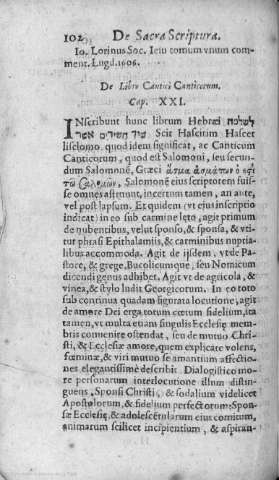 102 De Sacra Scriptura.
Io. Lorinus Soc. Iesu tomum vnum com
ment. Lugd. 1606.
De Libro Cantici Canticorum.
Cap. XXI.
INscribunt hunc librum Hebræi
שיר השירים אשר Scir Hascirim Hascer
lisclomo. quod idem significat, ac Canticum
Canticorum, quod est Salomoni, seu secun-
dum Salomonē, Græci
Salomonē eius scriptorem fuis-
se omnes æstimant, incertum tamen, an ante,
vel post lapsum. Et quidem (vt eius inscriptio
indicat) in eo sub carmine læto, agit primum
de nubentibus, velut sponso, & sponsa, & vti-
tur phrasi Epithalamiis, & carminibus nuptia-
libus accommoda. Agit de ijsdem, vt de Pa-
store, & grege, Bucolicumque, seu Nomicum
dicendi genus adhibet. Agit vt de agricola, &
vinea, & stylo ludit Georgicorum. In eo toto
sub continua quadam figurata locutione, agit
de amore Dei erga totum cœtum fidelium, ita
tamen, vt multa etiam singulis Ecclesię mem-
bris conuenire ostendat, seu de mutuo Chri-
sti, & Ecclesiæ amore, quem explicare volens,
fœminæ, & viri mutuo se amantium affectio-
nes elegantissimè describit Dialogistico mo-
re personarum interlocutione illum distin-
guens, Sponsi Christi, & sodalium videlicet
Apostolorum, & fidelium perfectorum: Spon-
sæ Ecclesię, & adolescētularum eius comitum,
animarum scilicet incipientium, & aspiran-